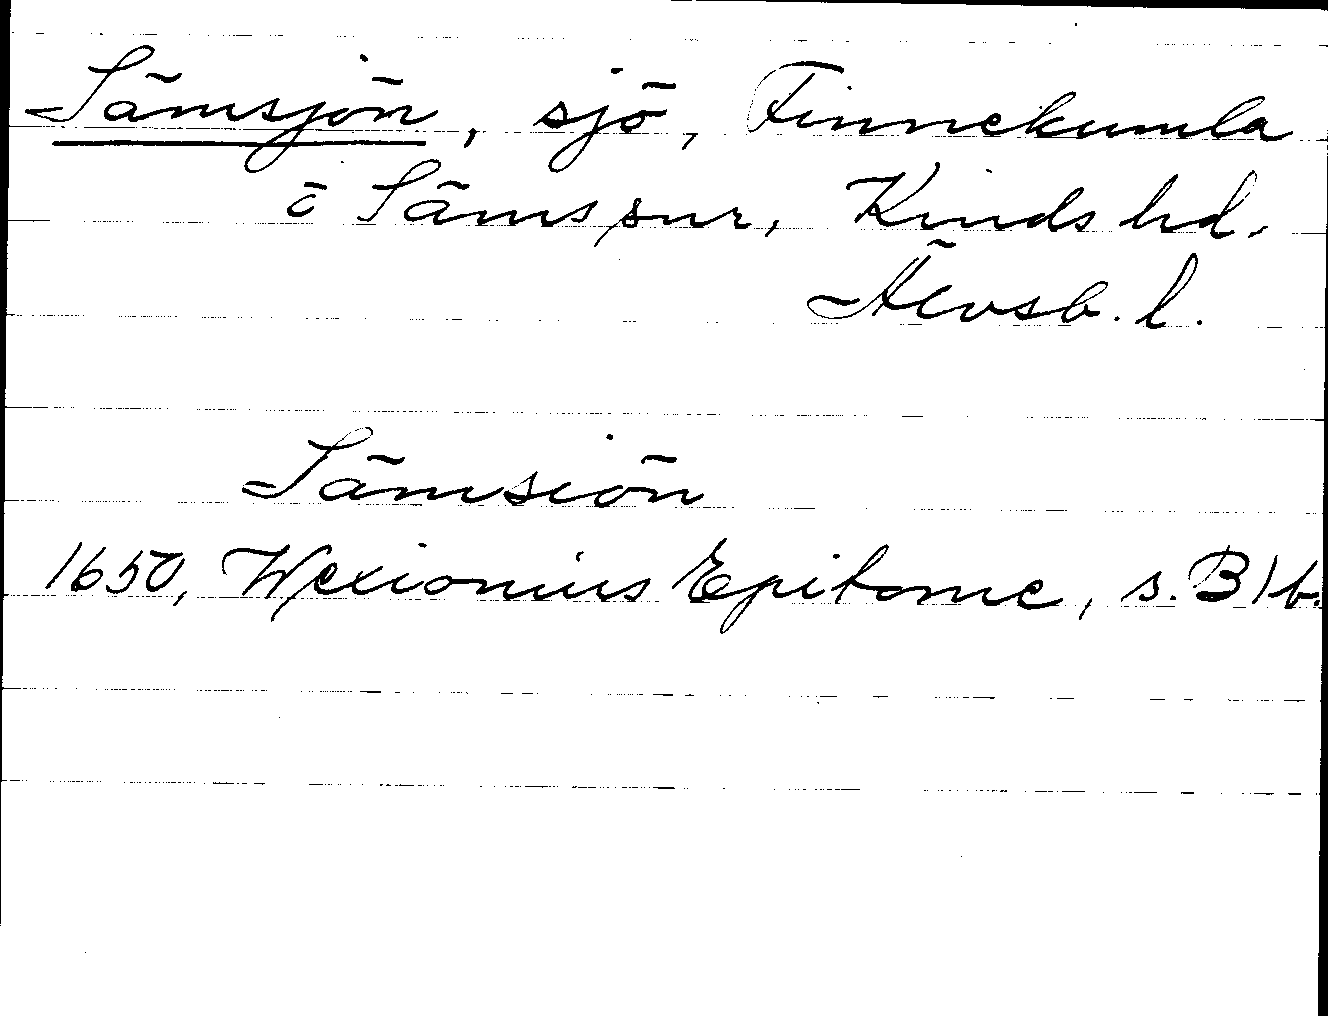 Sämsjön, sjö, Finnekumla
o Säms snr, Kinds hd.
Älvsb. l.
Sämsiön
1650, Wexionius Epitome, s. B1b.